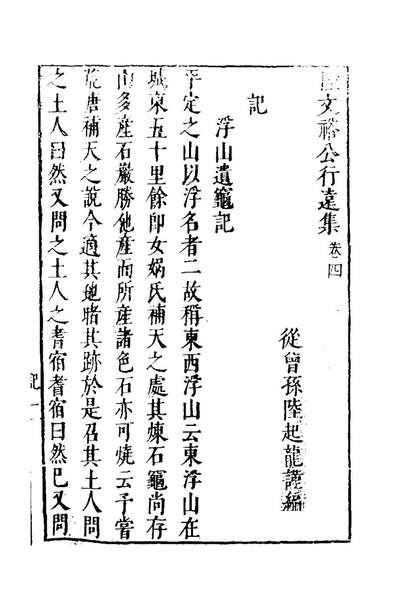 文裕公行遠集 卷之四
從曾孫陸起龍謹編
記
浮山遺竈記
平定之山以浮名者二故稱東西浮山云東浮山在
城東五十里餘即女媧氏補天之處其煉石竈尚存
山多産石巖勝他産而所産諸色石亦可燒云予嘗
荒唐補天之說今適其地睹其跡於是召其土人問
之土人曰然又問之土人之耆宿耆宿曰然已又問
記 一